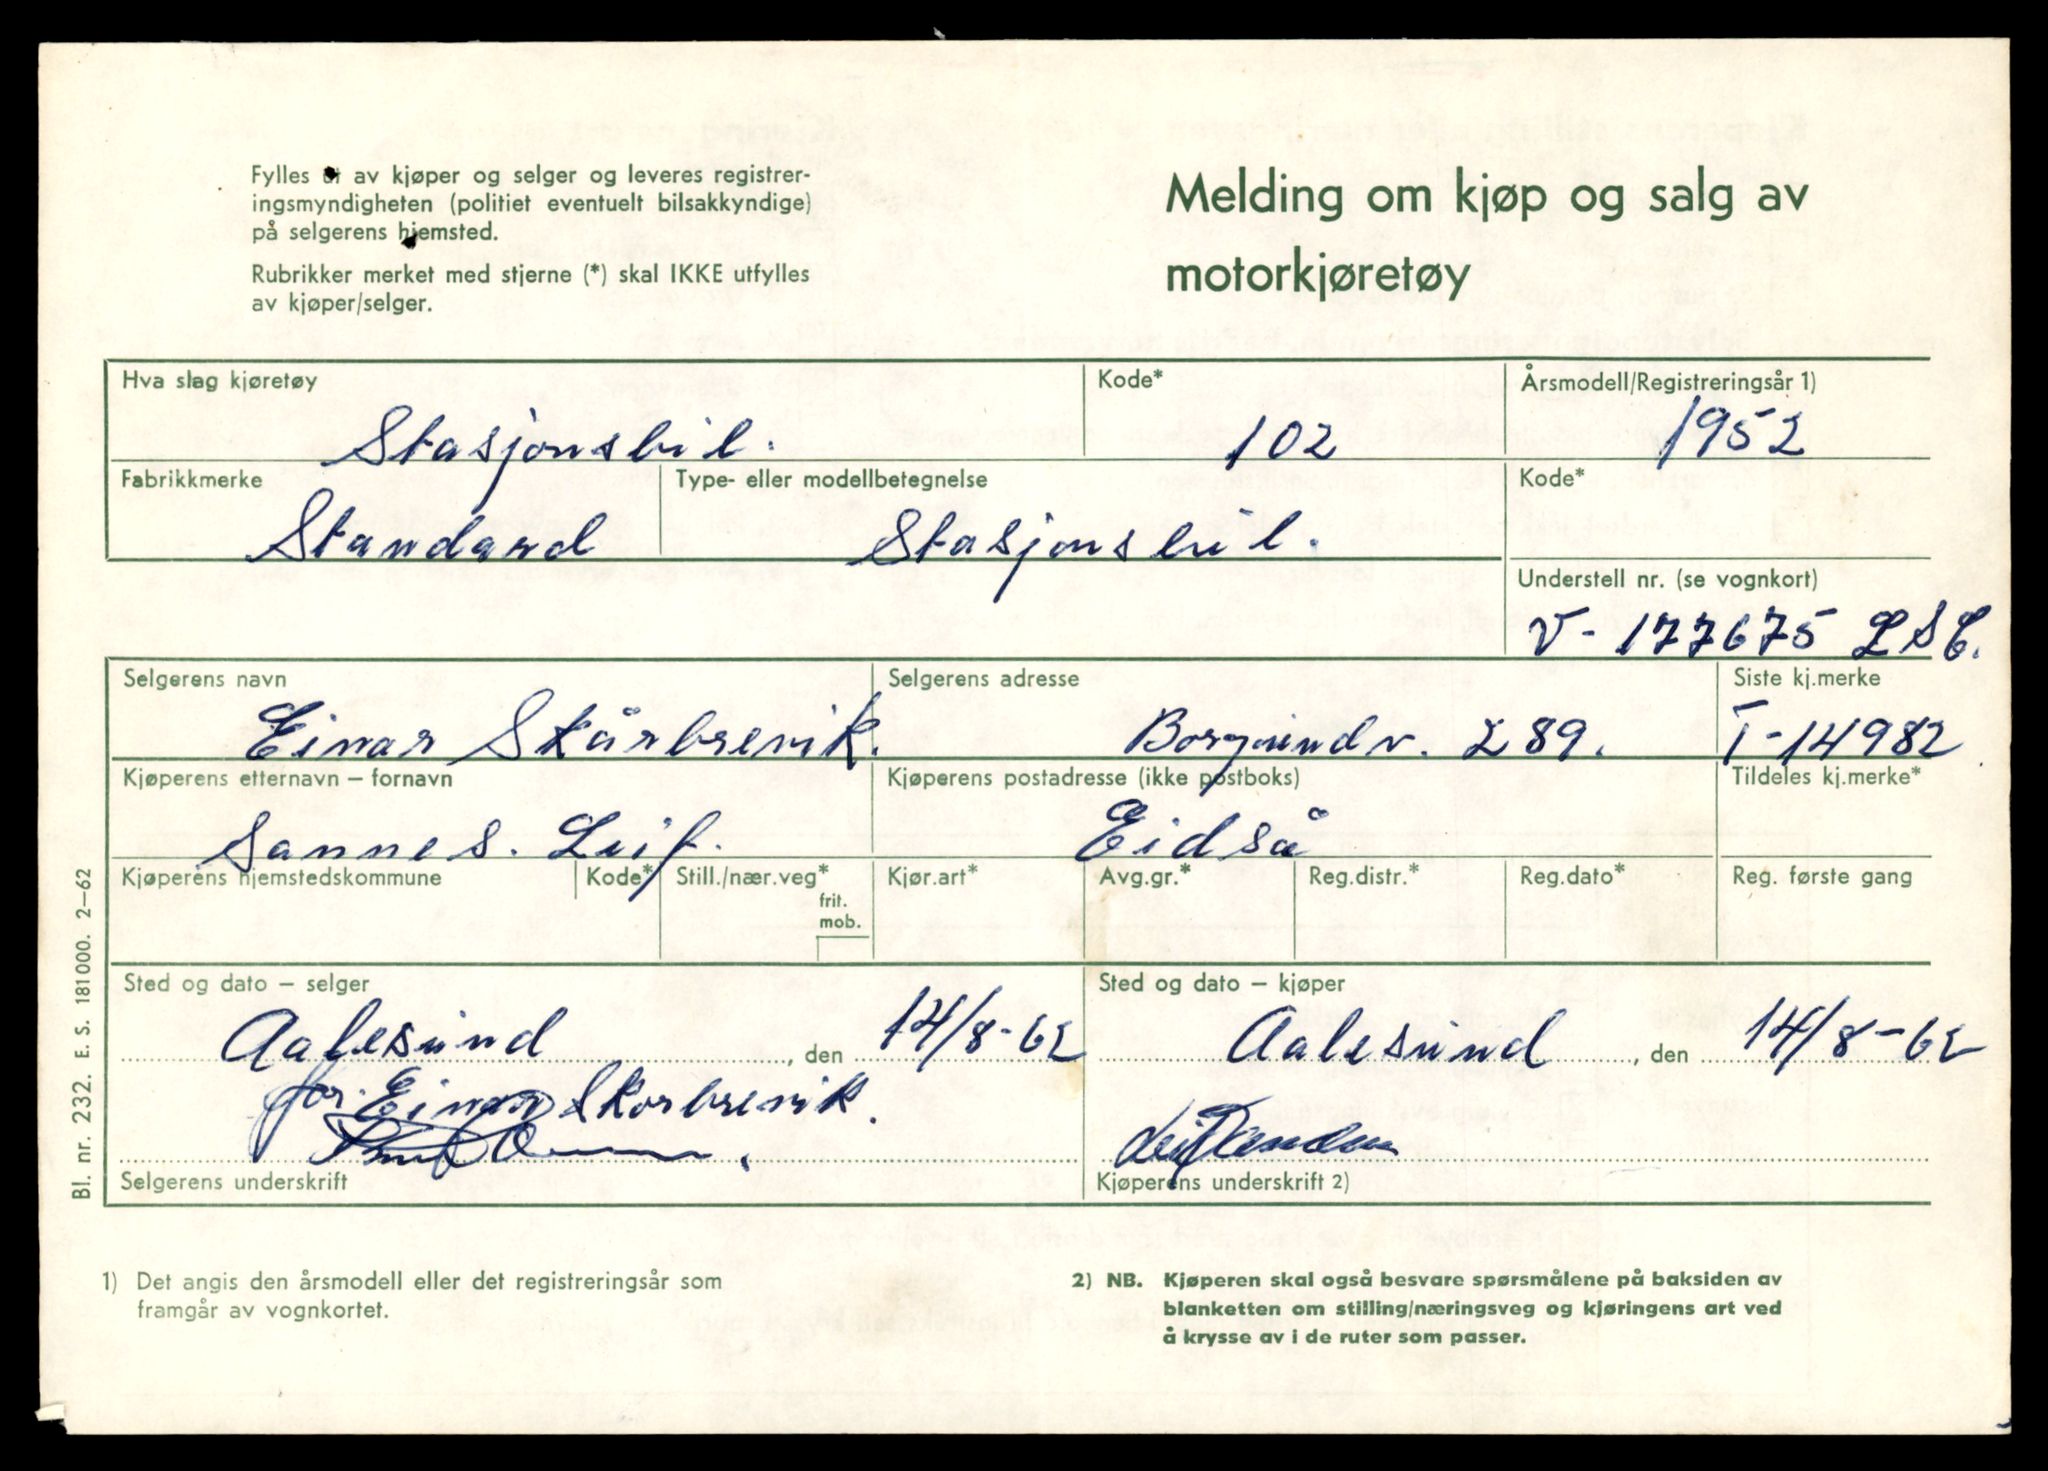 Fylles ut av kjøper og selger og leveres registrer-
ingsmyndigheten (politiet eventuelt bilsakkyndige)
på selgerens hjemsted.
Rubrikker merket med stjerne (*) skal IKKE utfylles
av kjøper/selger.
Melding om kjøp og salg av
motorkjøretøy
Hva slag kjøretøy
Kode*
Årsmodell/Registreringsår 1)
Stasjonsbil.
102
1952
Fabrikkmerke
Type- eller modellbetegnelse
Kode*
Standard
Stasjonsbil.
Understell nr. (se vognkort)
V-177675 LSC.
Selgerens navn
Selgerens adresse
Siste kj.merke
Einar Skårbrevik.
Borgundv. 289.
T-14982
Kjøperens etternavn – fornavn
Kjøperens postadresse (ikke postboks)
Tildeles kj.merke*
Sannes. Leif.
Eidså
Kjøperens hjemstedskommune
Kode*
Still./nær.veg*
frit.
mob.
Kjør.art*
Avg.gr.*
Reg.distr.*
Reg.dato*
Reg. første gang
Sted og dato – selger
Sted og dato – kjøper
Aalesund, den 14/8-62
Aalesund, den 14/8-62
for. Einar Skorbrevik.
Leif
Selgerens underskrift
Kjøperens underskrift 2)
Bl. nr. 232. E. S. 181000. 2–62
1) Det angis den årsmodell eller det registreringsår som
framgår av vognkortet.
2) NB. Kjøperen skal også besvare spørsmålene på baksiden av
blanketten om stilling/næringsveg og kjøringens art ved
å krysse av i de ruter som passer.